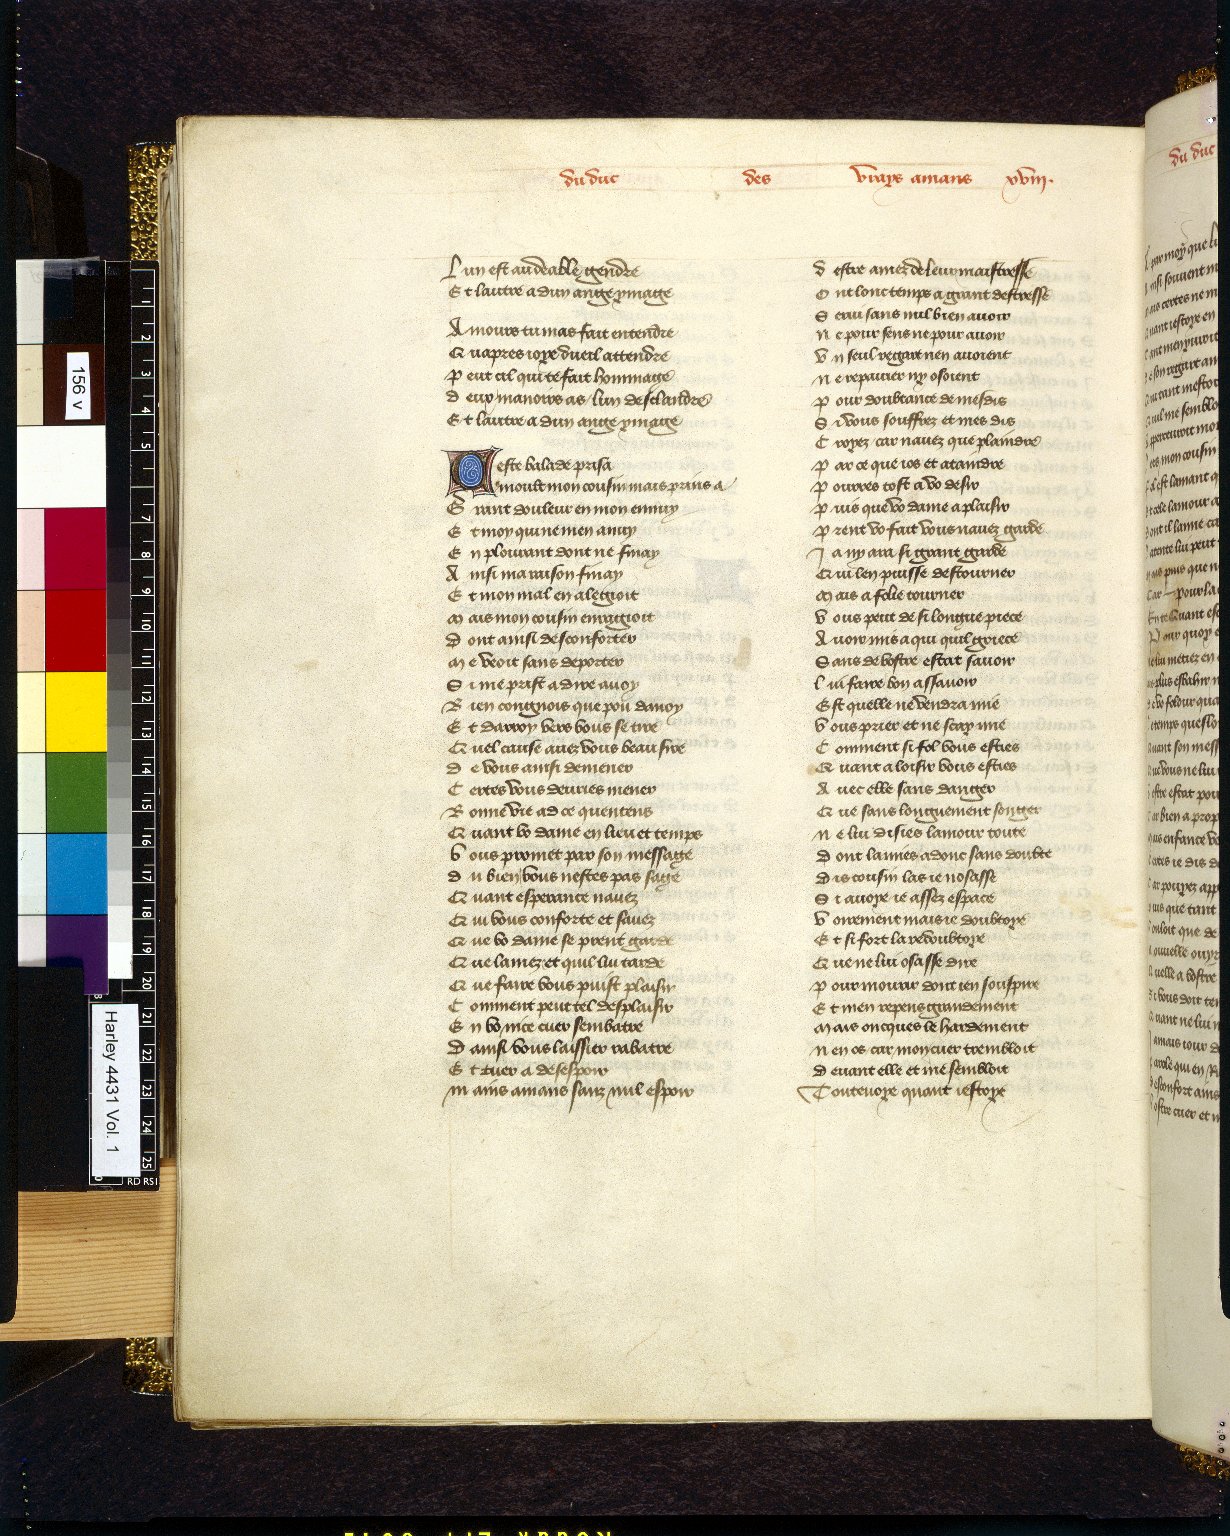 du duc des vrays amans xviij.
Lun est au deable gendre
Et lautre a dun ange ymage
Amours tu mas fait entendre
Quapres ioye dueil attendre
Peut cil qui te fait hommage
Deux manoirs as lun desclandre
Et lautre a dun ange ymage
Ceste balade prisa
Moult mon cousin mais prins a
Grant douleur en mon ennuy
Et moy qui ne men anuy
En plourant dont ne finay
Ainsi ma raison finay
Et mon mal en alegioit
Mais mon cousin enragioit
Dont ainsi desconforter
Me veoit sans deporter
Si me prist a dire auoy
Bien congnois que pou dauoy
Et darroy vers vous se tire
Quel cause auez vous beau sire
De vous ainsi demener
Certes vous deuries mener
Bonne vie ad ce quentens
Quant vo dame en lieu et temps
Vous promet par son message
Du bien vous nestes pas sage
Quant esperance nauez
Qui vous conforte et sauez
Que vo dame se prent garde
Que lamez et quil lui tarde
Que faire vous puist plaisir
Comment peut tel desplaisir
En vo nice cuer sembatre
Dainsi vous laissier rabatre
Et tuer a desespoir
Mains amans sanz nul espoir
Destre amez de leur maistresse
Ont lonc temps a grant destresse
Serui sans nul bien auoir
Ne pour sens ne pour auoir
Un seul regart nen auoient
Ne repairier ny osoient
Pour doubtance de mesdis
Si vous souffrez et mes dis
Croyez car nauez que plaindre
Par ce que ios et ataindre
Pourres tost a vo desir
Puis que vo dame a plaisir
Prent vo fait vous nauez garde
Ja ny ara si grant garde
Qui len puisse destourner
Mais a folie tourner
Vous peut de si longue piece
Auoir mis a qui quil griece
Sans de vostre estat sauoir
Lui faire bon assauoir
Est quelle ne vendra mie
Vous prier et ne scay mie
Comment si fol vous esties
Quant a loisir vous esties
Auec elle sans danger
Que sans longuement songer
Ne lui disies lamour toute
Dont lamies adonc sans doubte
Dis cousin las ie nosasse
Si auoye ie assez espace
Voirement mais ie doubtoye
Et si fort la redoubtoye
Que ne lui osasse dire
Pour mourir dont ien souspire
Et men repens grandement
Mais oncques le hardement
Nen os car mon cuer trembloit
Deuant elle et me sembloit
Toutevoye quant iestoye
du duc
156 v
Harley 4431 Vol. 1